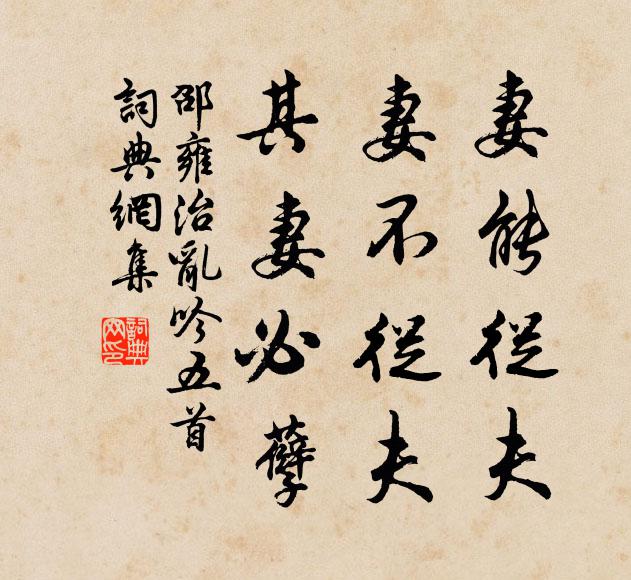 妻能從夫
妻不從夫
其妻必孽
邵雍治亂吟五首
詞典網集
詞典網印